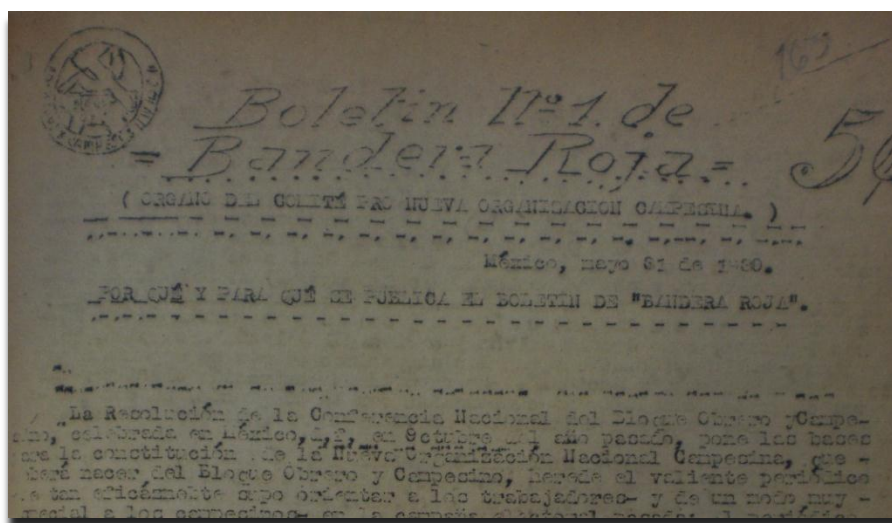 Boletin Nº 1. de
= Bandera Roja =
5¢
( ORGANO DEL COMITÉ PRO NUEVA ORGANISACION CAMPESINA. )
México, mayo 31 de 1930.
POR QUÉ Y PARA QUÉ SE PUBLICA EL BOLETIN DE "BANDERA ROJA".
La Resolución de la Conferencia Nacional del Bloque Obrero yCampe-
ino, celebrada en México, d,f, en Octubre del año pasado, pone las bases
ara la constitución de la Nueva Organisación Nacional Campesina, que -
berá nacer del Bloque Obrero y Campesino, hereda el valiente periódico
e tan eficázmente supo orientar a los trabajadores- y de un modo muy -
pecial a los campesinos- en la campaña electoral pasada: el periódico